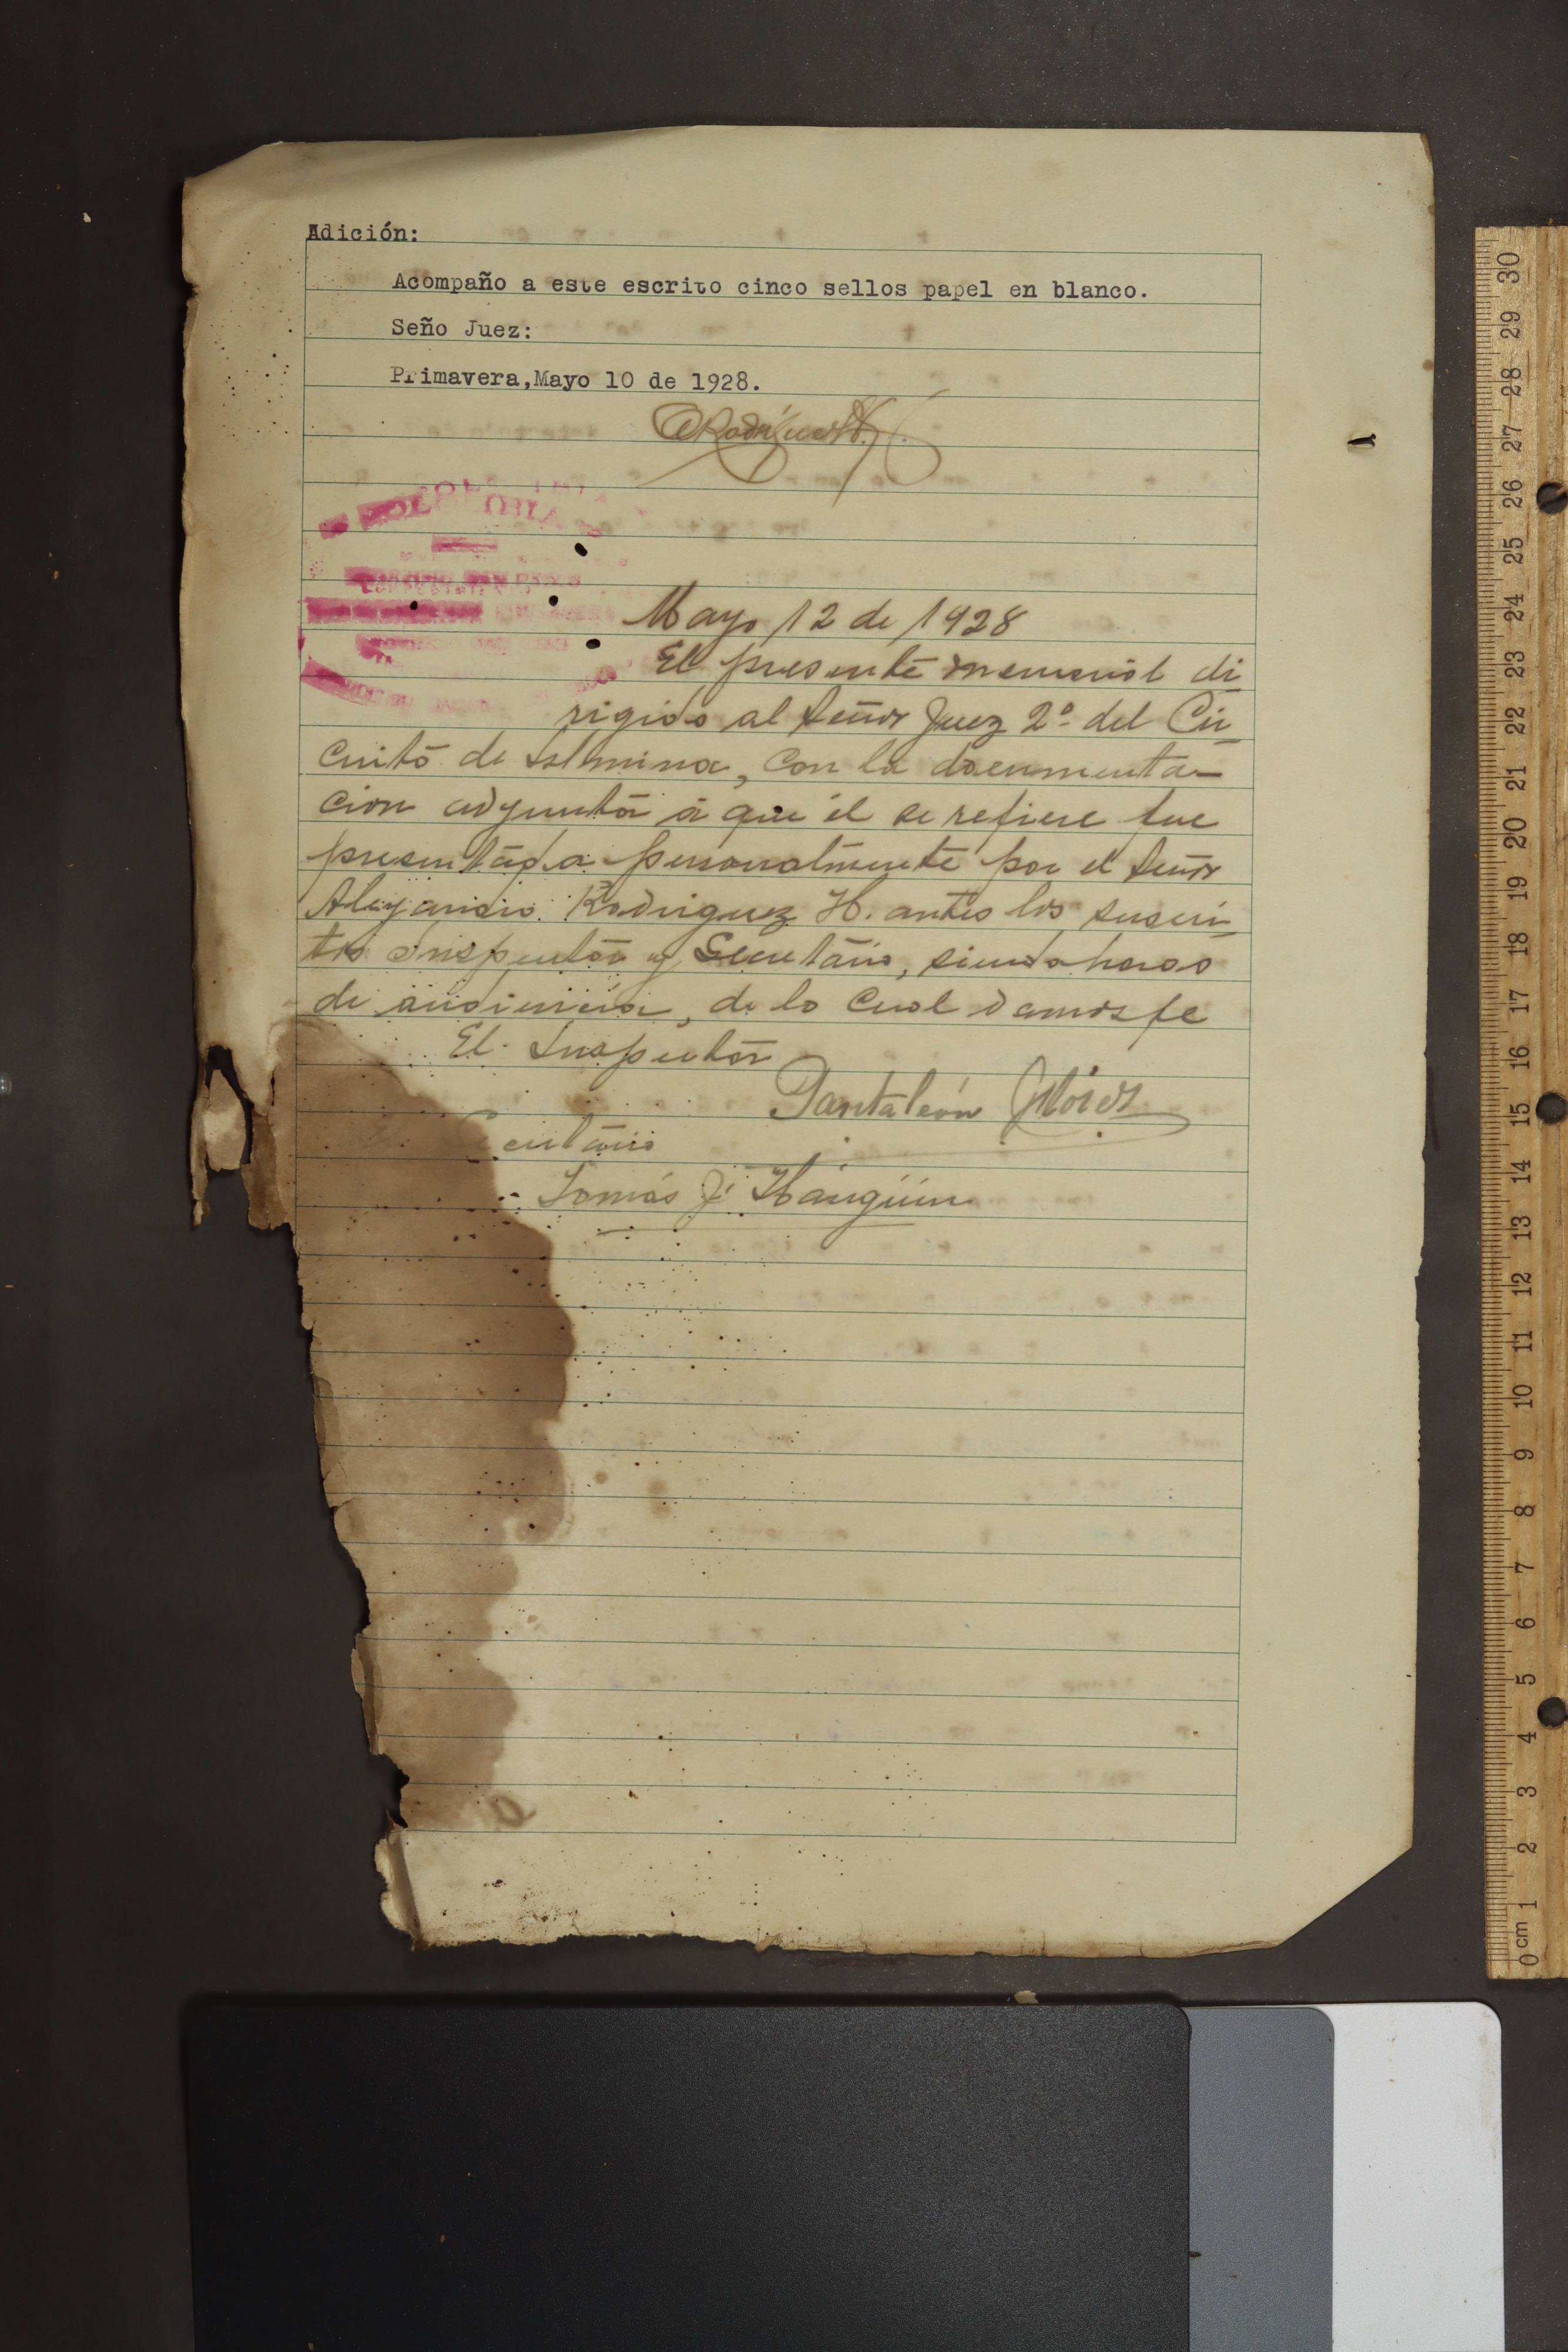 Adición:
Acompaño a este escrito cinco sellos papel en blanco.
Seño Juez:
Primavera,Mayo 10 de 1928.
ARodríguez H.
Mayo 12 de 1928
El presente memorial di
rigido al señor Juez 2º del Cir
cuito de Istmina, con la documenta-
cion adjunta á que él se refiere fue
presentada personalmente por el señor
Alejandro Rodriguez H. antes los suscri
tos inspector y Secretario, siendo horas
de audiencia, de lo cual damos fe
El Inspector
Pantaleón
cretario
Tomás J.
30
29
28
27
26
25
24
23
22
21
20
19
18
17
16
15
14
13
12
11
10
9
8
7
6
5
4
3
2
1
0 cm